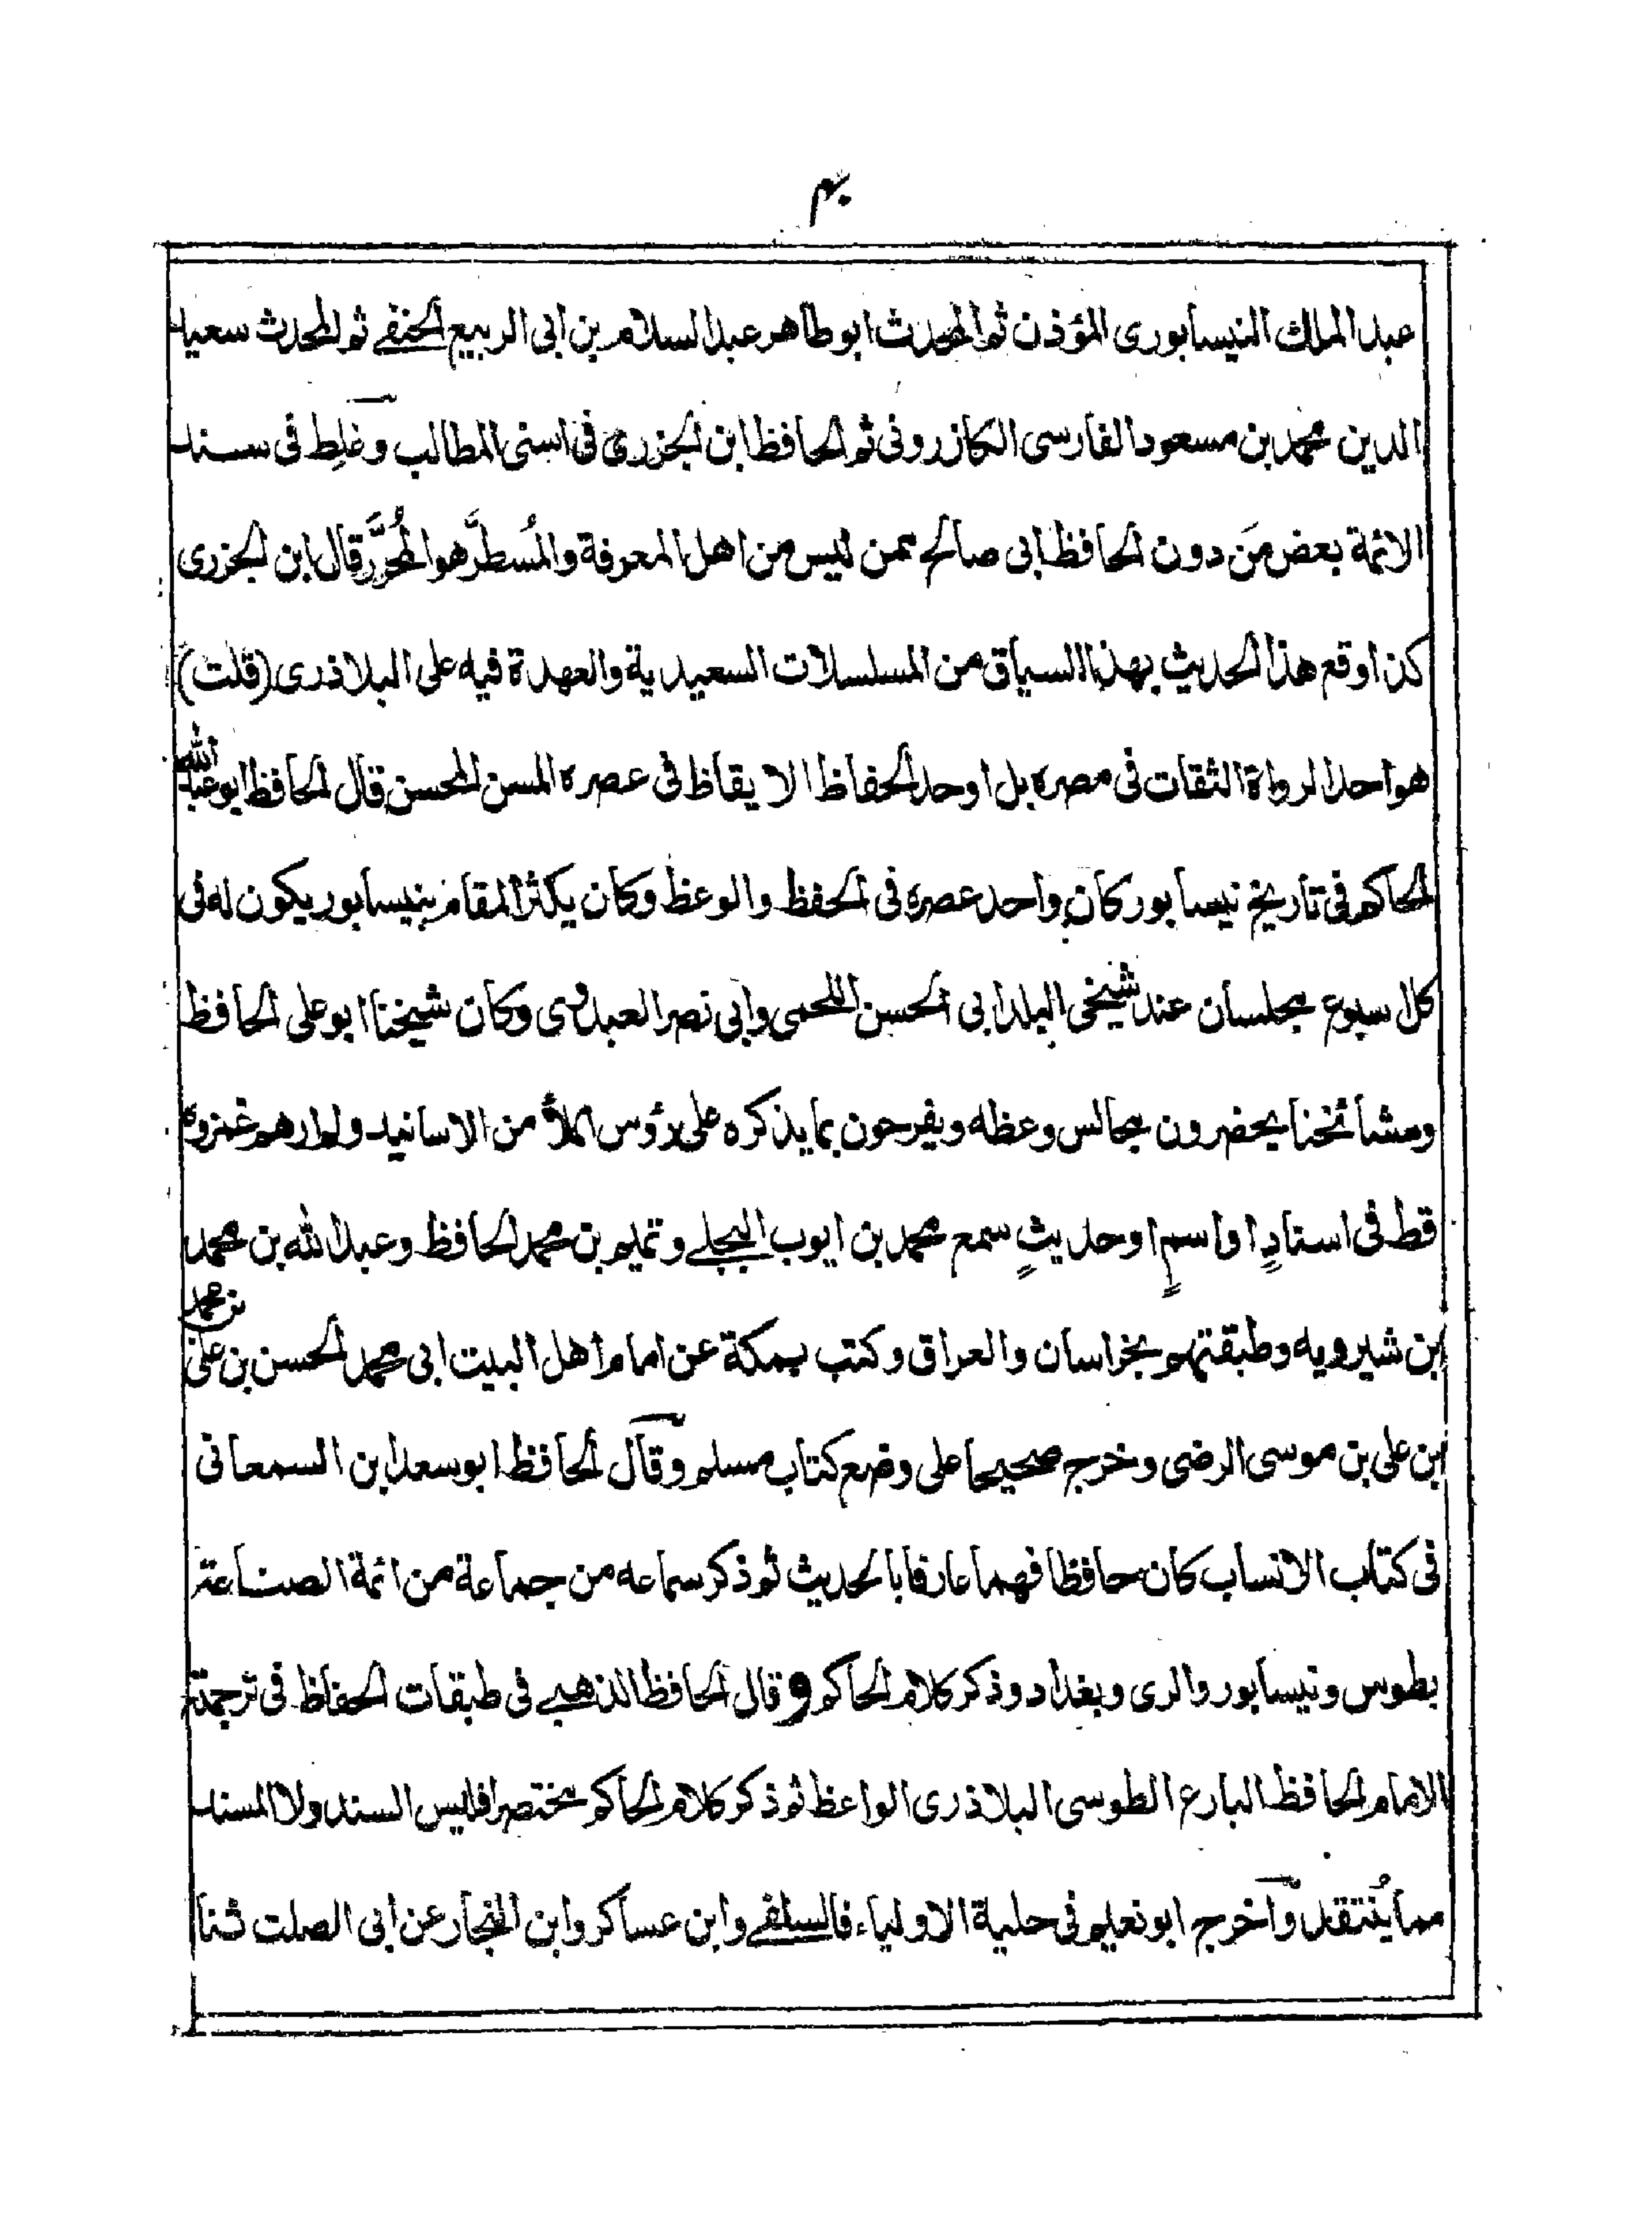 ۴۰
عبد الملك النيسابورى المؤذن ثم المحدث ابو طاهر عبد السلام بن ابى الربيع الحنفے ثم المحدث سعيد
الدين محمد بن مسعود الفارسى الكازرونى ثم الحافظ ابن الجزرى فى اسنى المطالب وغلِط فى سند
الائمة بعض مَن دون الحافظ ابى صالح ممن ليس من اهل المعرفة والمُسطَّر هو المُحرَّر قال ابن الجزرى
كذا وقع هذا الحديث بهذا السياق من المسلسلات السعيدية والعهدة فيه على البلاذرى (قلت)
هو احد الرواة الثقات فى مصره بل اوحد الحفاظ الايقاظ فى عصره المسن المحسن قال الحافظ ابو عبد الله
الحاكم فى تاريخ نيسابور كان واحد عصره فى الحفظ والوعظ وكان يكثر المقام بنيسابور يكون له فى
كل سبوع مجلسان عند شيخى البلد ابى الحسن اللحمى وابى نصر العبدوى وكان شيخنا ابو على الحافظ
ومشائخنا يحضرون مجالس وعظه ويفرحون بما يذكره على رؤس الملأ من الاسانيد ولم ارهم غمزوه
قط فى اسنادٍ او اسمٍ او حديثٍ سمع محمد بن ايوب البجلے وتميم بن محمد الحافظ وعبد الله بن محمد
ابن شيرويه وطبقتهم بخراسان والعراق وكتب بمكة عن امام اهل البيت ابى محمد الحسن بن على بن محمد
ابن على بن موسى الرضى وخرج صحيحا على وضع كتاب مسلم وقال الحافظ ابو سعد ابن السمعانى
فى كتاب الانساب كان حافظا فهما عارفا بالحديث ثم ذكر سماعه من جماعة من ائمة الصناعة
بطوس ونيسابور والرى وبغداد وذكر كلام الحاكم وقال الحافظ الذهبے فى طبقات الحفاظ فى ترجمة
الامام الحافظ البارع الطوسى البلاذرى الواعظ ثم ذكر كلام الحاكم مختصرا فليس السند ولا المسند
مما يُنتقد وآخرج ابو نعيم فى حلية الاولياء فالسلفے وابن عساكر وابن النجار عن ابى الصلت ثنا